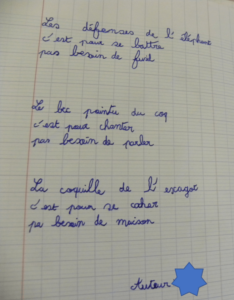 Les défenses de l'éléphant
c'est pour se battre
pas besoin de fusil
Le bec pointu du coq
c'est pour chanter
pas besoin de parler
La coquille de l'excagot
c'est pour se cacher
pas besoin de maison
Auteur